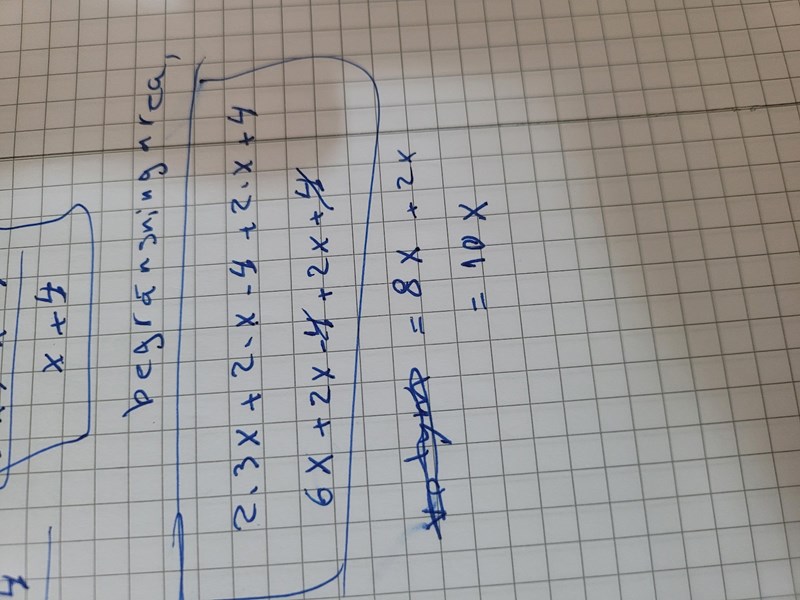 x + 4
begränsningarea,
2.3x + 2.x - 4 + 2.x + 4
6x + 2x - 4 + 2x + 4
= 8x + 2x
= 10x